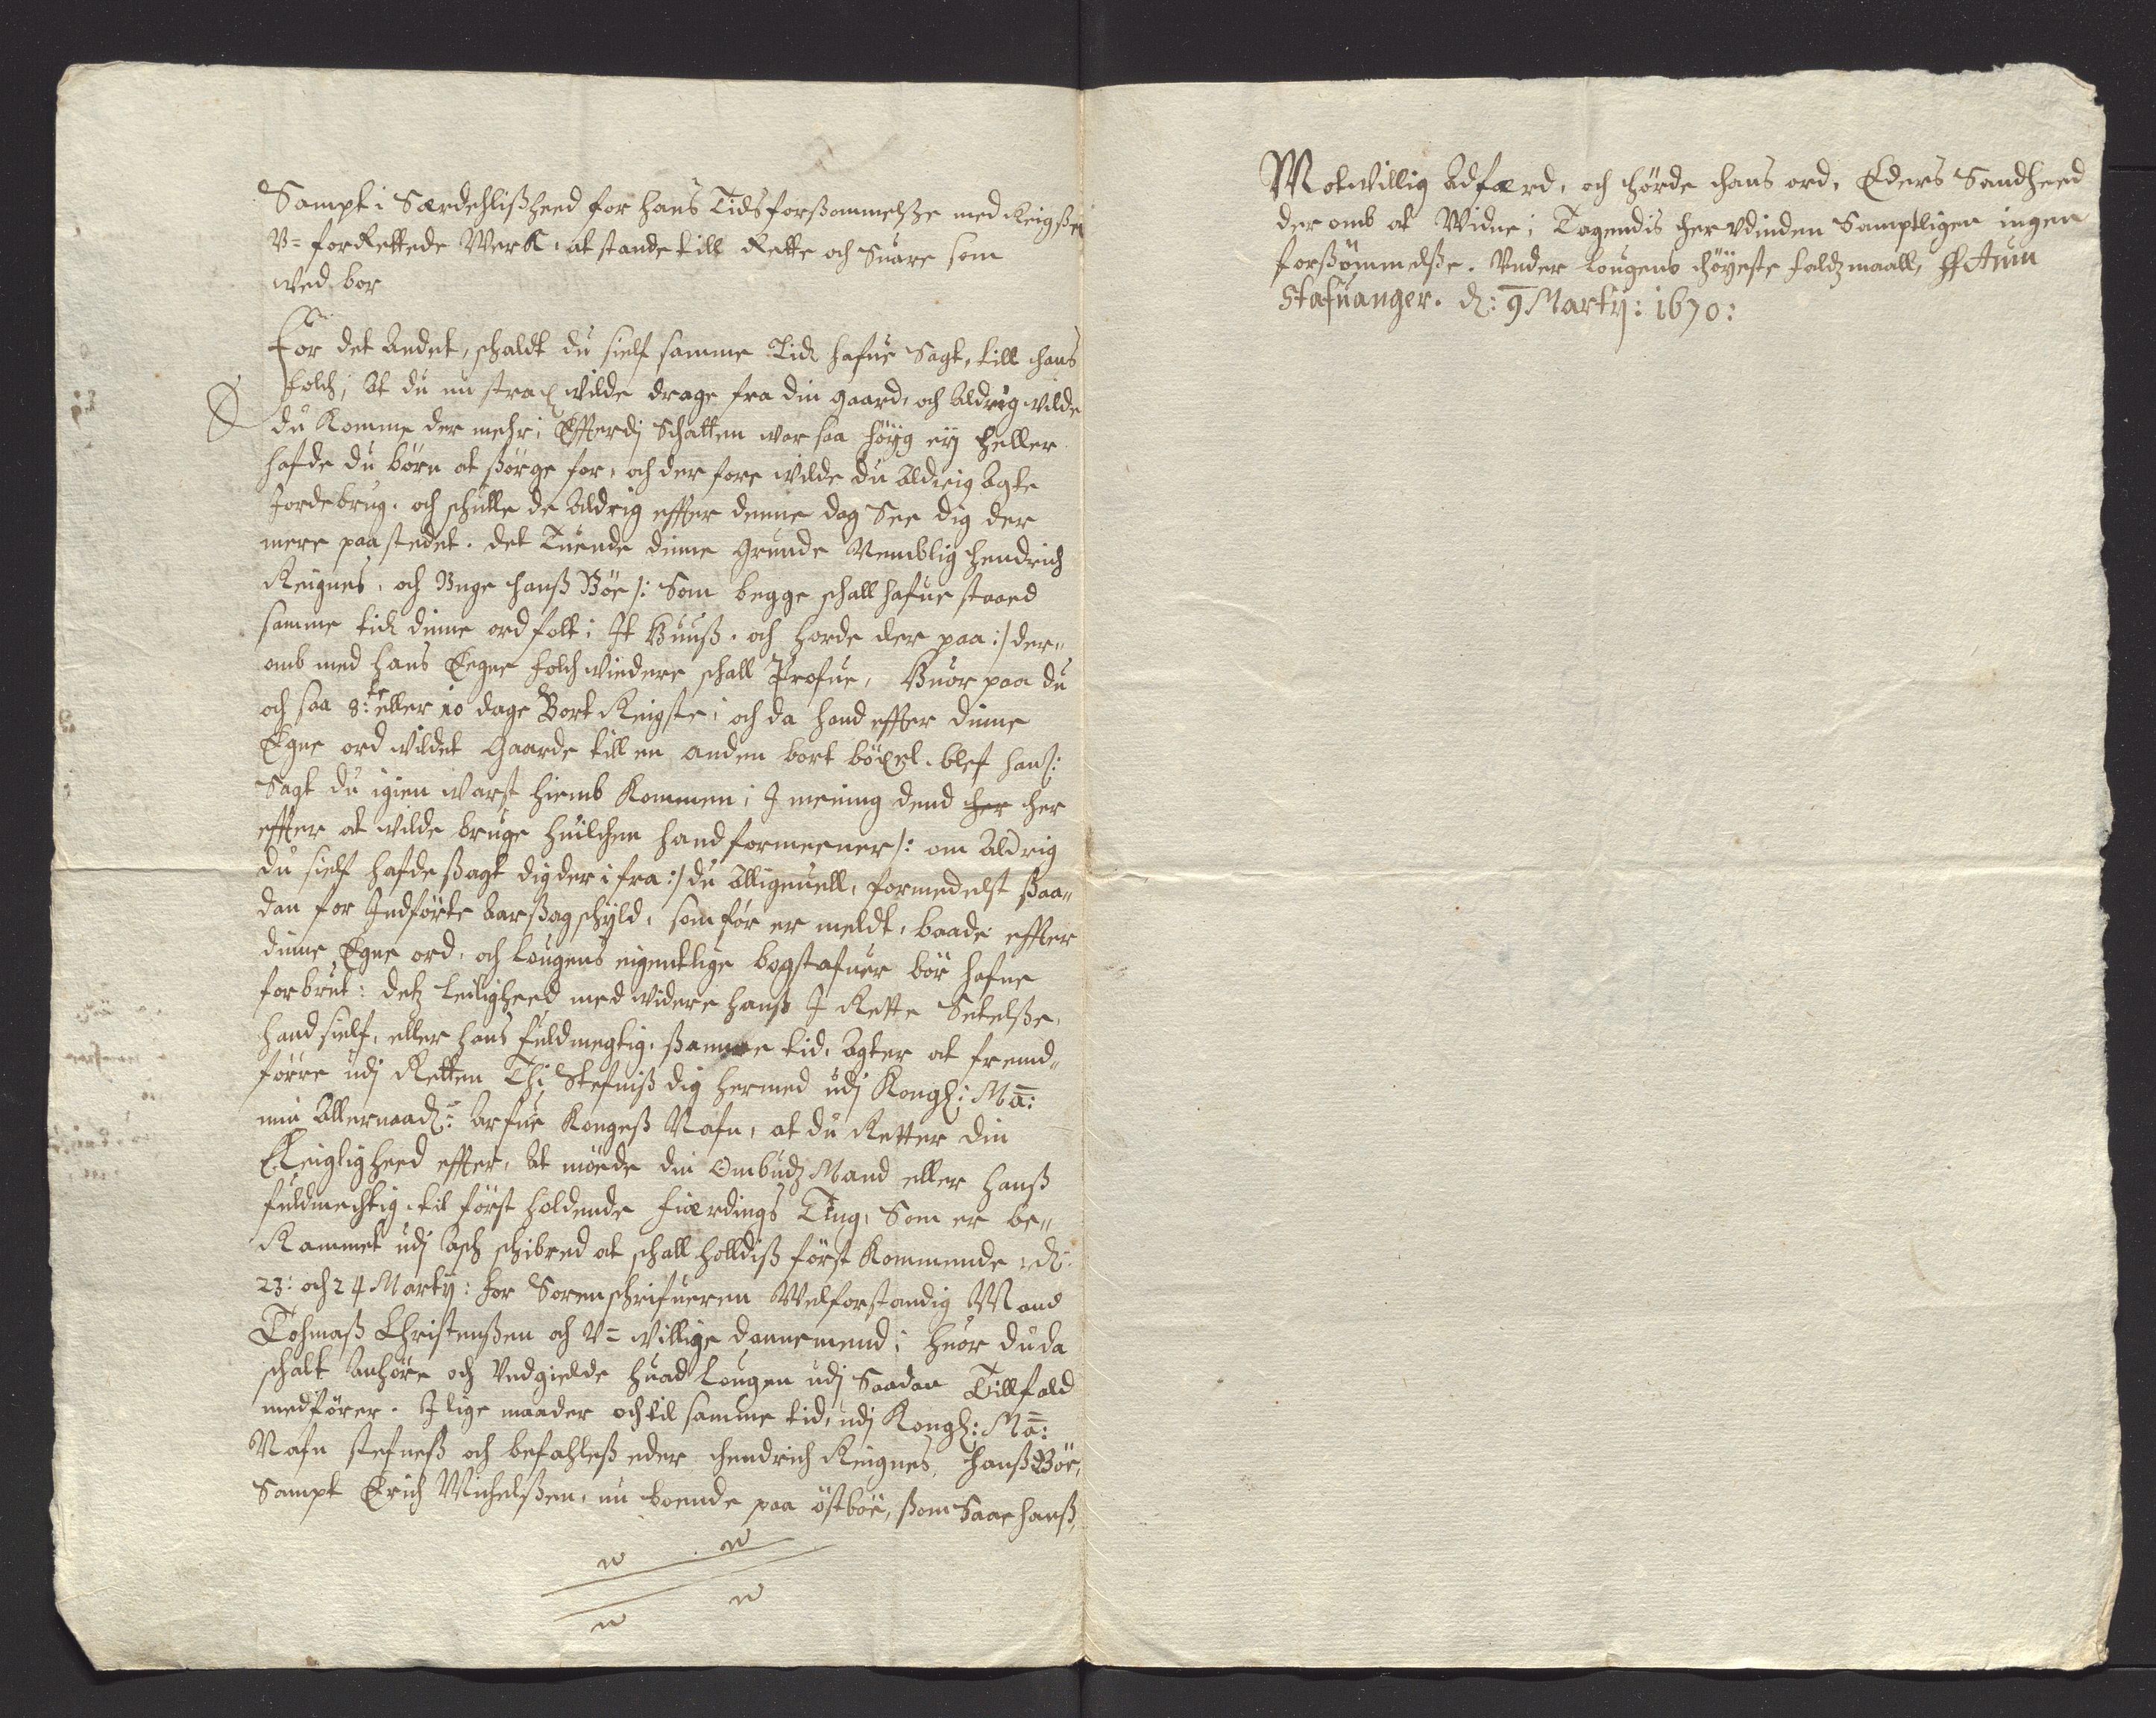 Sampt i Særdehlißheed for hans Tids forßommelße med Reigßen
V= forRettede Werk, at stande till Rette och Suare som
wed bor
For det Andet, schaldt du sielf samme Tid hafue Sagt, till hans
folch, At du nu strax wilde drage fra din gaard, och Aldrig wilde
du Komme der mehr; Efterdj Schatten war saa höyg eÿ heller
hafde du börn at ßörge for, och der fore wilde du Aldrig Agte
Jordebrug, och schulle de Aldrig effter denne dag See dig der
mere paa stedet. det Tuende dinne Grunde Nemblig Hendrich
Reignes, och Unge Hanß Böe /: Som begge schall hafue staaed
samme tid dinne ord folt i It Huuß, och horde der paa :/ der„
omb med hans Eegne folch widere schall Profue, Huor paa du
och saa 8:te eller 10 dage Bort Reigste, och da hand effter dinne
Egne ord wildet Gaarde till en anden bort böxel, blef han /:
Sagt du igien warst hiemb Kommen; J mening dend her her
effter at wilde bruge huilchen hand formeener /: om Aldrig
du sielf hafde ßagt dig der i fra :/ du Alligeuell, formedelst ßaa„
dan for Indförte Aarßag schÿld, som för er meldt, baade effter
dinne Egne ord, och Lougens eigentlige bogstafuer bör hafue
forbrut: detz leiligheed med widere hanß J Rette Settelße,
hand sielf, eller hans fuldmegtig, ßamme tid, Agter at fremd„
förre udj Retten Thj Stefniß dig hermed udj Kongl: Ma:
min Allernaad: Arfue Kongeß Nafn, at du Retter din
Leigligheed effter, At möede din Ombudz Mand eller Hanß
fuldmechtig, til först holdende Fierdings Ting, Som er be„
Rammet udj Asch schibred at schall holldiß först Kommende d:
23: och 24 Martÿ: for Sorenschrifueren Welforstandig Mand
Tohmaß Christenßen och V= willige dannemend; huor du da
schalt Anhöre och Undgielde huad Lougen udj Saadan Tillfald
medförer. J lige maader och til samme tid, udj Kongl: Ma:
Nafn stefneß och befahleß eder Hendrich Reignes, Hanß Böe,
Sampt Erich Michelßen, nu boende paa östböe, ßom Saae hanß
Motwillig Adfærd, och hörde hans ord, Eders Sandheed
der omb at Widne; Tagendis her udinden Samptligen ingen
forßömmelße. Under Lougens höÿeste faldzmaall, Actum
Stafuanger. d: 9 Martÿ: 1670: